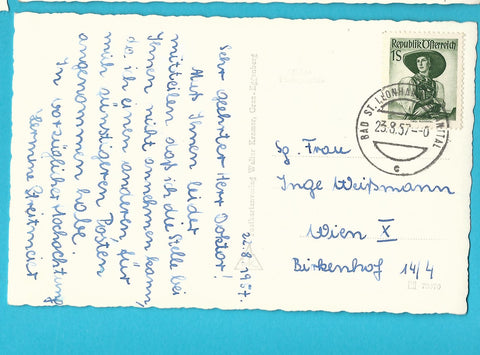 22.8.1957.
Sehr geehrter Herr Doktor!
Muß Ihnen leider
mitteilen daß ich die Stelle bei
Ihnen nicht annehmen kann,
da ich einen anderen, für
mich günstigeren Posten
angenommen habe.
In vorzüglicher Hochachtung
Hermine Streitmeier
Republik Österreich
1S
BAD ST. LEONHARD
23.8.57
c
Sg. Frau
Inge Weißmann
Wien X
Birkenhof 14/4